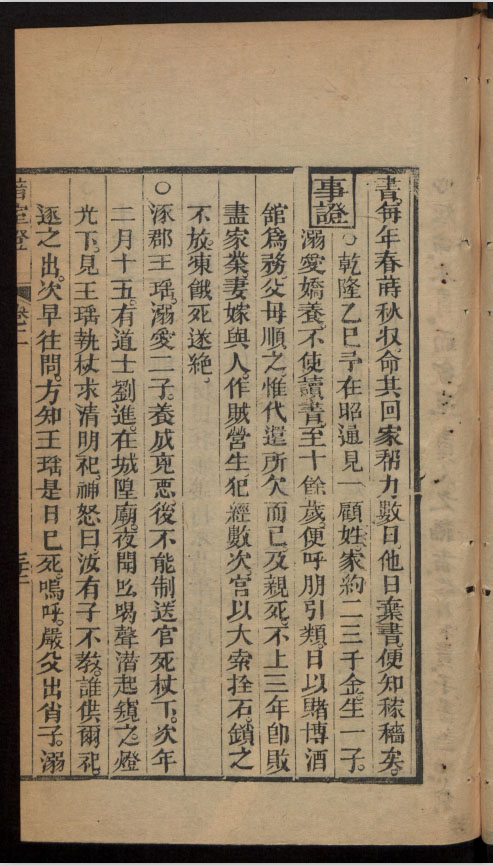 書。每年春蒔秋収。命其回家帮力數日。他日棄書。便知稼穡矣。
事證 ○乾隆乙巳予在昭通見一顧姓家約二三千金。生一子。
溺愛嬌養。不使讀書。至十餘歲。便呼朋引類。日以賭博酒
舘爲務。父母順之。惟代還所欠而已。及親死。不上三年卽敗
盡家業。妻嫁與人。作賊營生。犯經數次。官以大索拴石。鎖之
不放。凍餓死。遂絶。
○涿郡王瑶。溺愛二子。養成克悪。後不能制。送官死杖下。次年
二月十五。有道士劉進。在城隍廟。夜聞吆喝聲。潜起窺之。燈
光下。見王瑶執杖求清明祀。神怒曰。汝有子不教。誰供爾祀。
逐之出。次早往問。方知王瑶是日已死。嗚呼。嚴父出肖子。溺
卷二